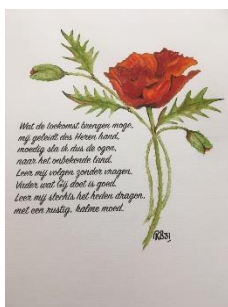 Wat de toekomst brengen moge,
mij geleidt des Heren hand,
moedig sla ik dus de ogen,
naar het onbekende land.
Leer mij volgen zonder vragen.
Vader wat Gij doet is goed.
Leer mij slechts het heden dragen,
met een rustig, kalme moed.